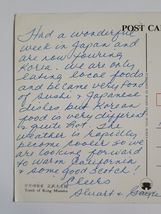 POST CA
Had a wonderful
week in Japan and
are now touring
Korea. We are only
eating local foods
and became very fond
of Sushi & Japanese
dishes but Korean
food is very different
& quite hot. The
weather is rapidly
become cooler so we
are looking forward
to warm California
& some good Scotch!
Cheers
Stuart &
Tomb of King Muyeol